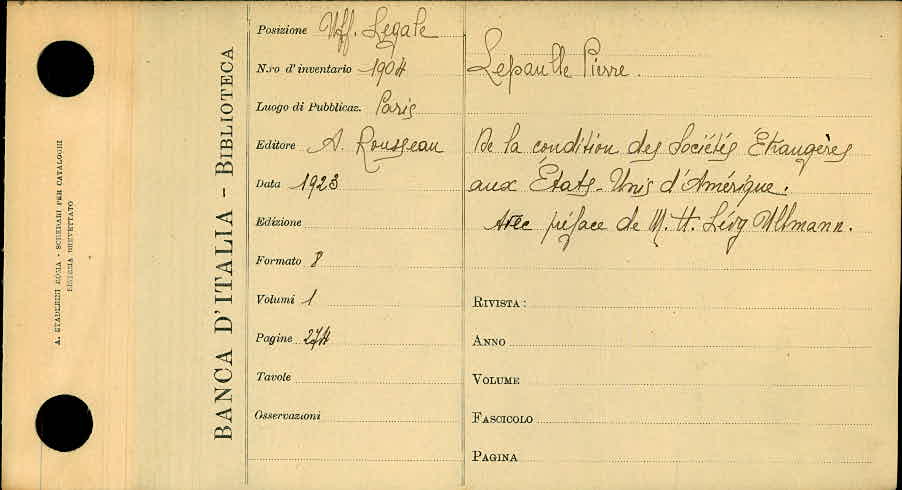 A. STADERINI ROMA - SCHEDARI PER CATALOGHI
SISTEMA BREVETTATO
BANCA D'ITALIA - BIBLIOTECA
Posizione Uff. Legale
N.ro d'inventario 1904
Luogo di Pubblicaz. Paris
Editore A. Rousseau
Data 1923
Edizione
Formato 8
Volumi 1
Pagine 274
Tavole
Osservazioni
Lepaulle Pierre.
De la condition des Sociétés Étrangères
aux États-Unis d'Amérique.
Avec préface de M. H. Lévy Ullmann.
RIVISTA:
ANNO
VOLUME
FASCICOLO
PAGINA